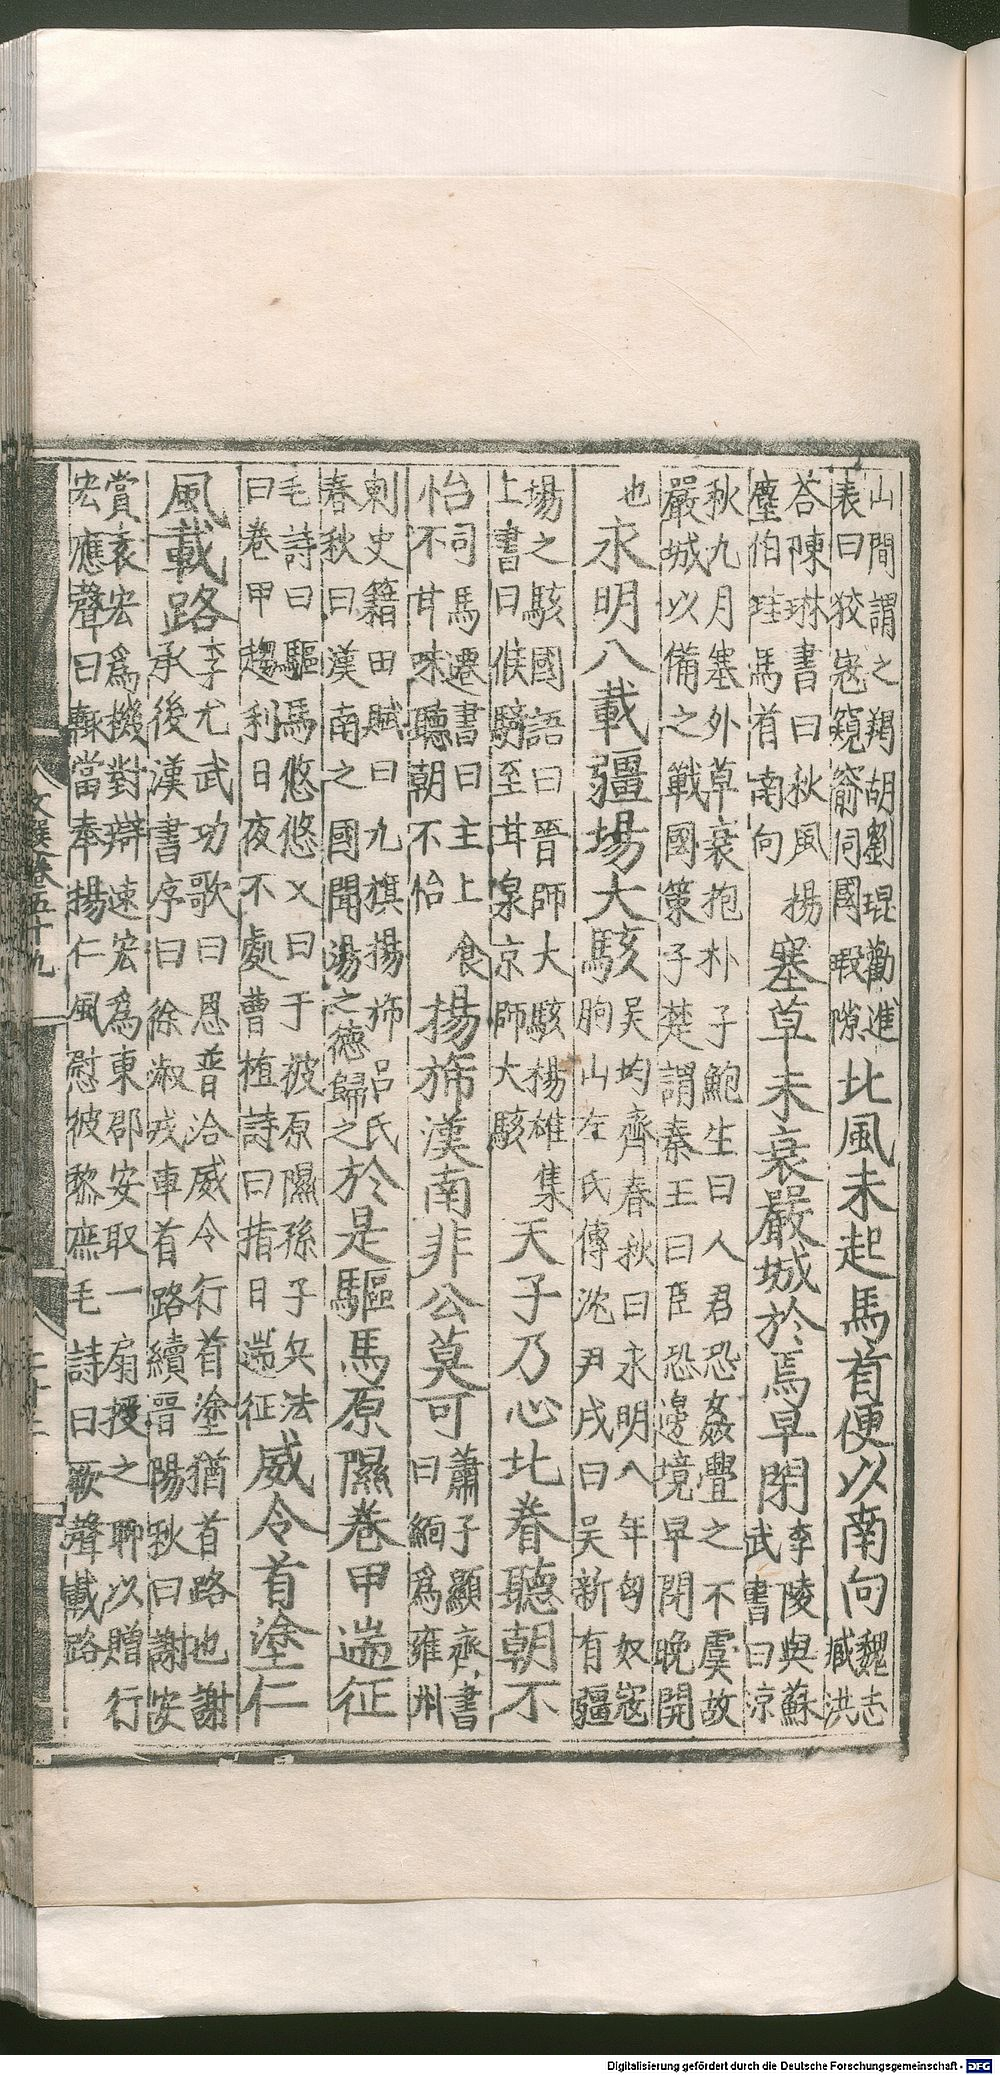 山間謂之羯胡劉琨勸進
表曰狡寇窺窬伺國瑕隙北風未起馬首便以南向魏志臧洪
荅陳琳書曰秋風揚
塵伯珪馬首南向塞草未衰嚴城於焉早閉李陵與蘇武書曰涼
秋九月塞外草衰抱朴子鮑生曰人君恐姦釁之不虞故
嚴城以備之戰國策子楚謂秦王曰臣恐邊境早閉晚開
也永明八載疆場大駭吳均齊春秋曰永明八年匈奴寇朐山左氏傳沈尹戌曰吳新有疆
場之駭國語曰晉師大駭楊雄集
上書曰候騎至甘泉京師大駭天子乃心北眷聽朝不
怡司馬遷書曰主上食不甘味聽朝不怡揚斾漢南非公莫可蕭子顯齊書曰緬爲雍州
刺史籍田賦曰九旗揚斾呂氏
春秋曰漢南之國聞湯之德歸之於是驅馬原隰卷甲遄征
毛詩曰驅馬悠悠又曰于彼原隰孫子兵法
曰卷甲趨利日夜不處曹植詩曰指日遄征威令首塗仁
風載路李尤武功歌曰恩普洽威令行首塗猶首路也謝
承後漢書序曰徐淑戎車首路續晉陽秋曰謝安
賞袁宏爲機對辯速宏爲東郡安取一扇授之聊以贈行
宏應聲曰輒當奉揚仁風慰彼黎庶毛詩曰厥聲載路
文選卷五十九